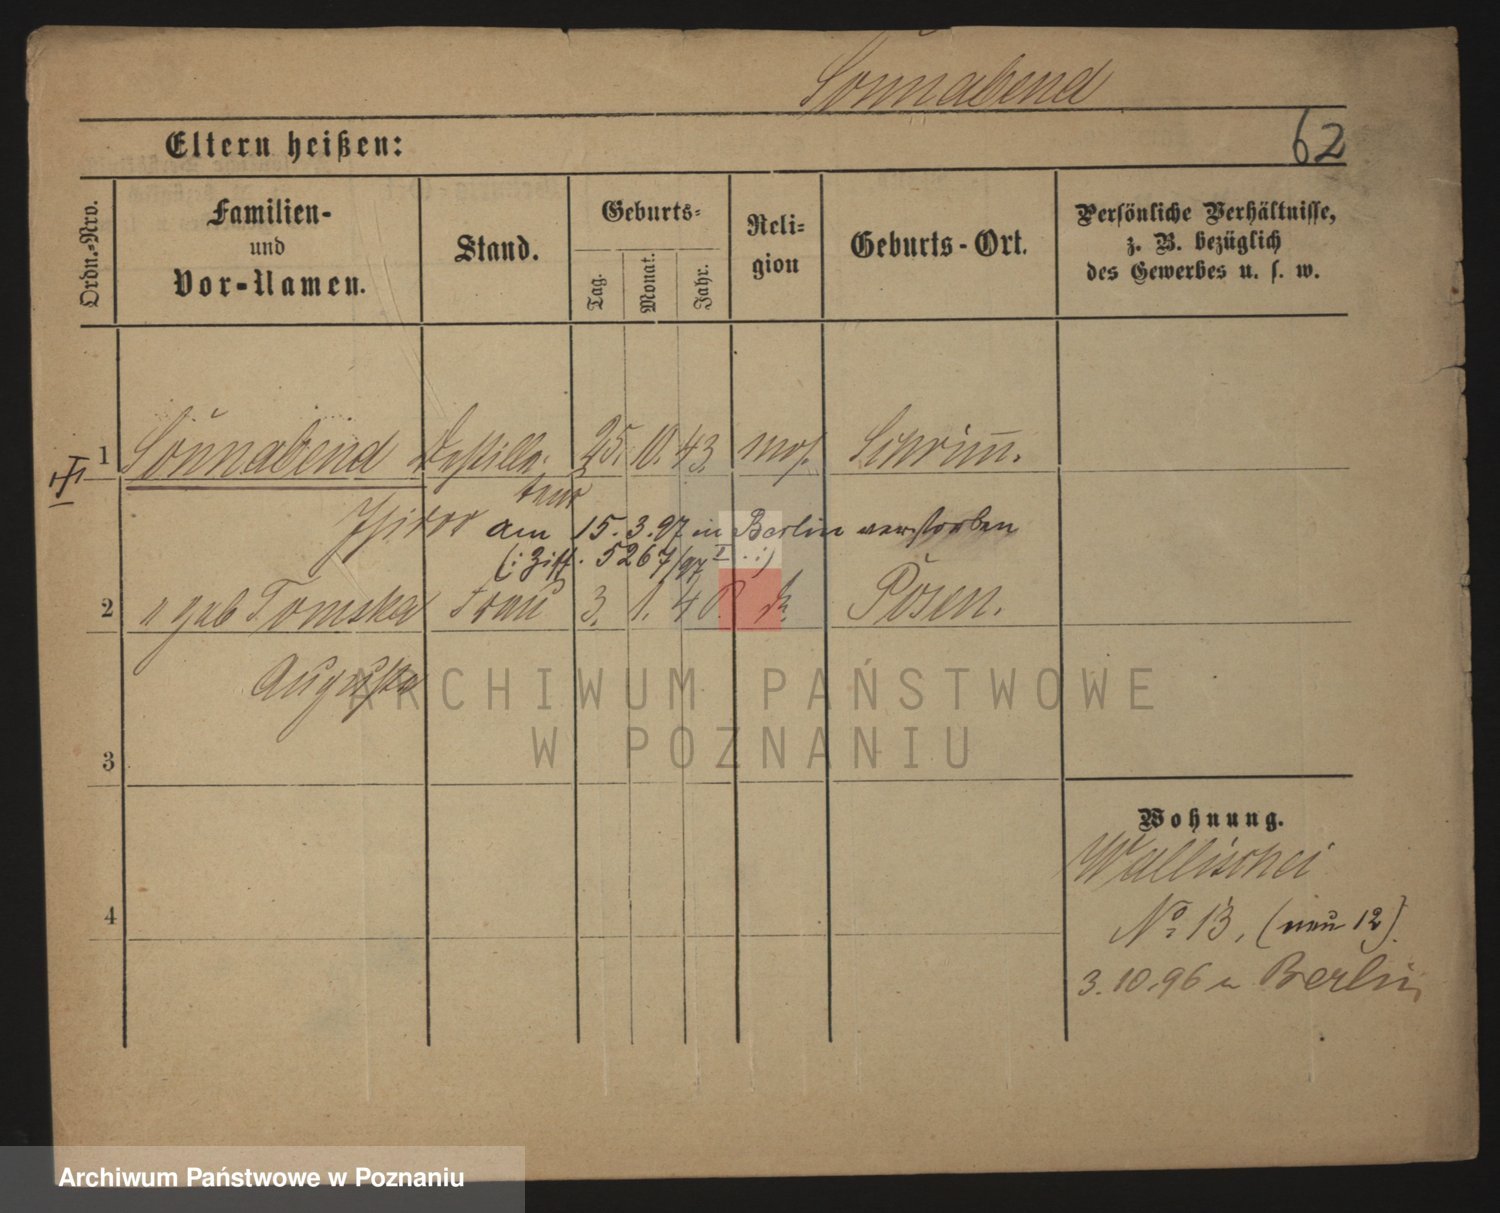 Sonnabend
Eltern heißen:
62
Ordn.-Nro.
Familien-
und
Vor-Namen.
Stand.
Geburts-
Tag.
Monat.
Jahr.
Reli-
gion
Geburts-Ort.
Persönliche Verhältnisse,
z. B. bezüglich
des Gewerbes u. s. w.
1 Sonnabend Destilla- 25. 10. 43. mos. Schrimm.
teur
Isidor am 15.3.97 in Berlin verstorben
(: Ziff. 5267/97 I. :)
2 " geb Tomska Frau 3. 1. 48. do Posen.
Augusta
ARCHIWUM PAŃSTWOWE
W POZNANIU
3
Wohnung.
Wallischei
No. 13, (neu 12).
4
3.10.96 n Berlin
Archiwum Państwowe w Poznaniu